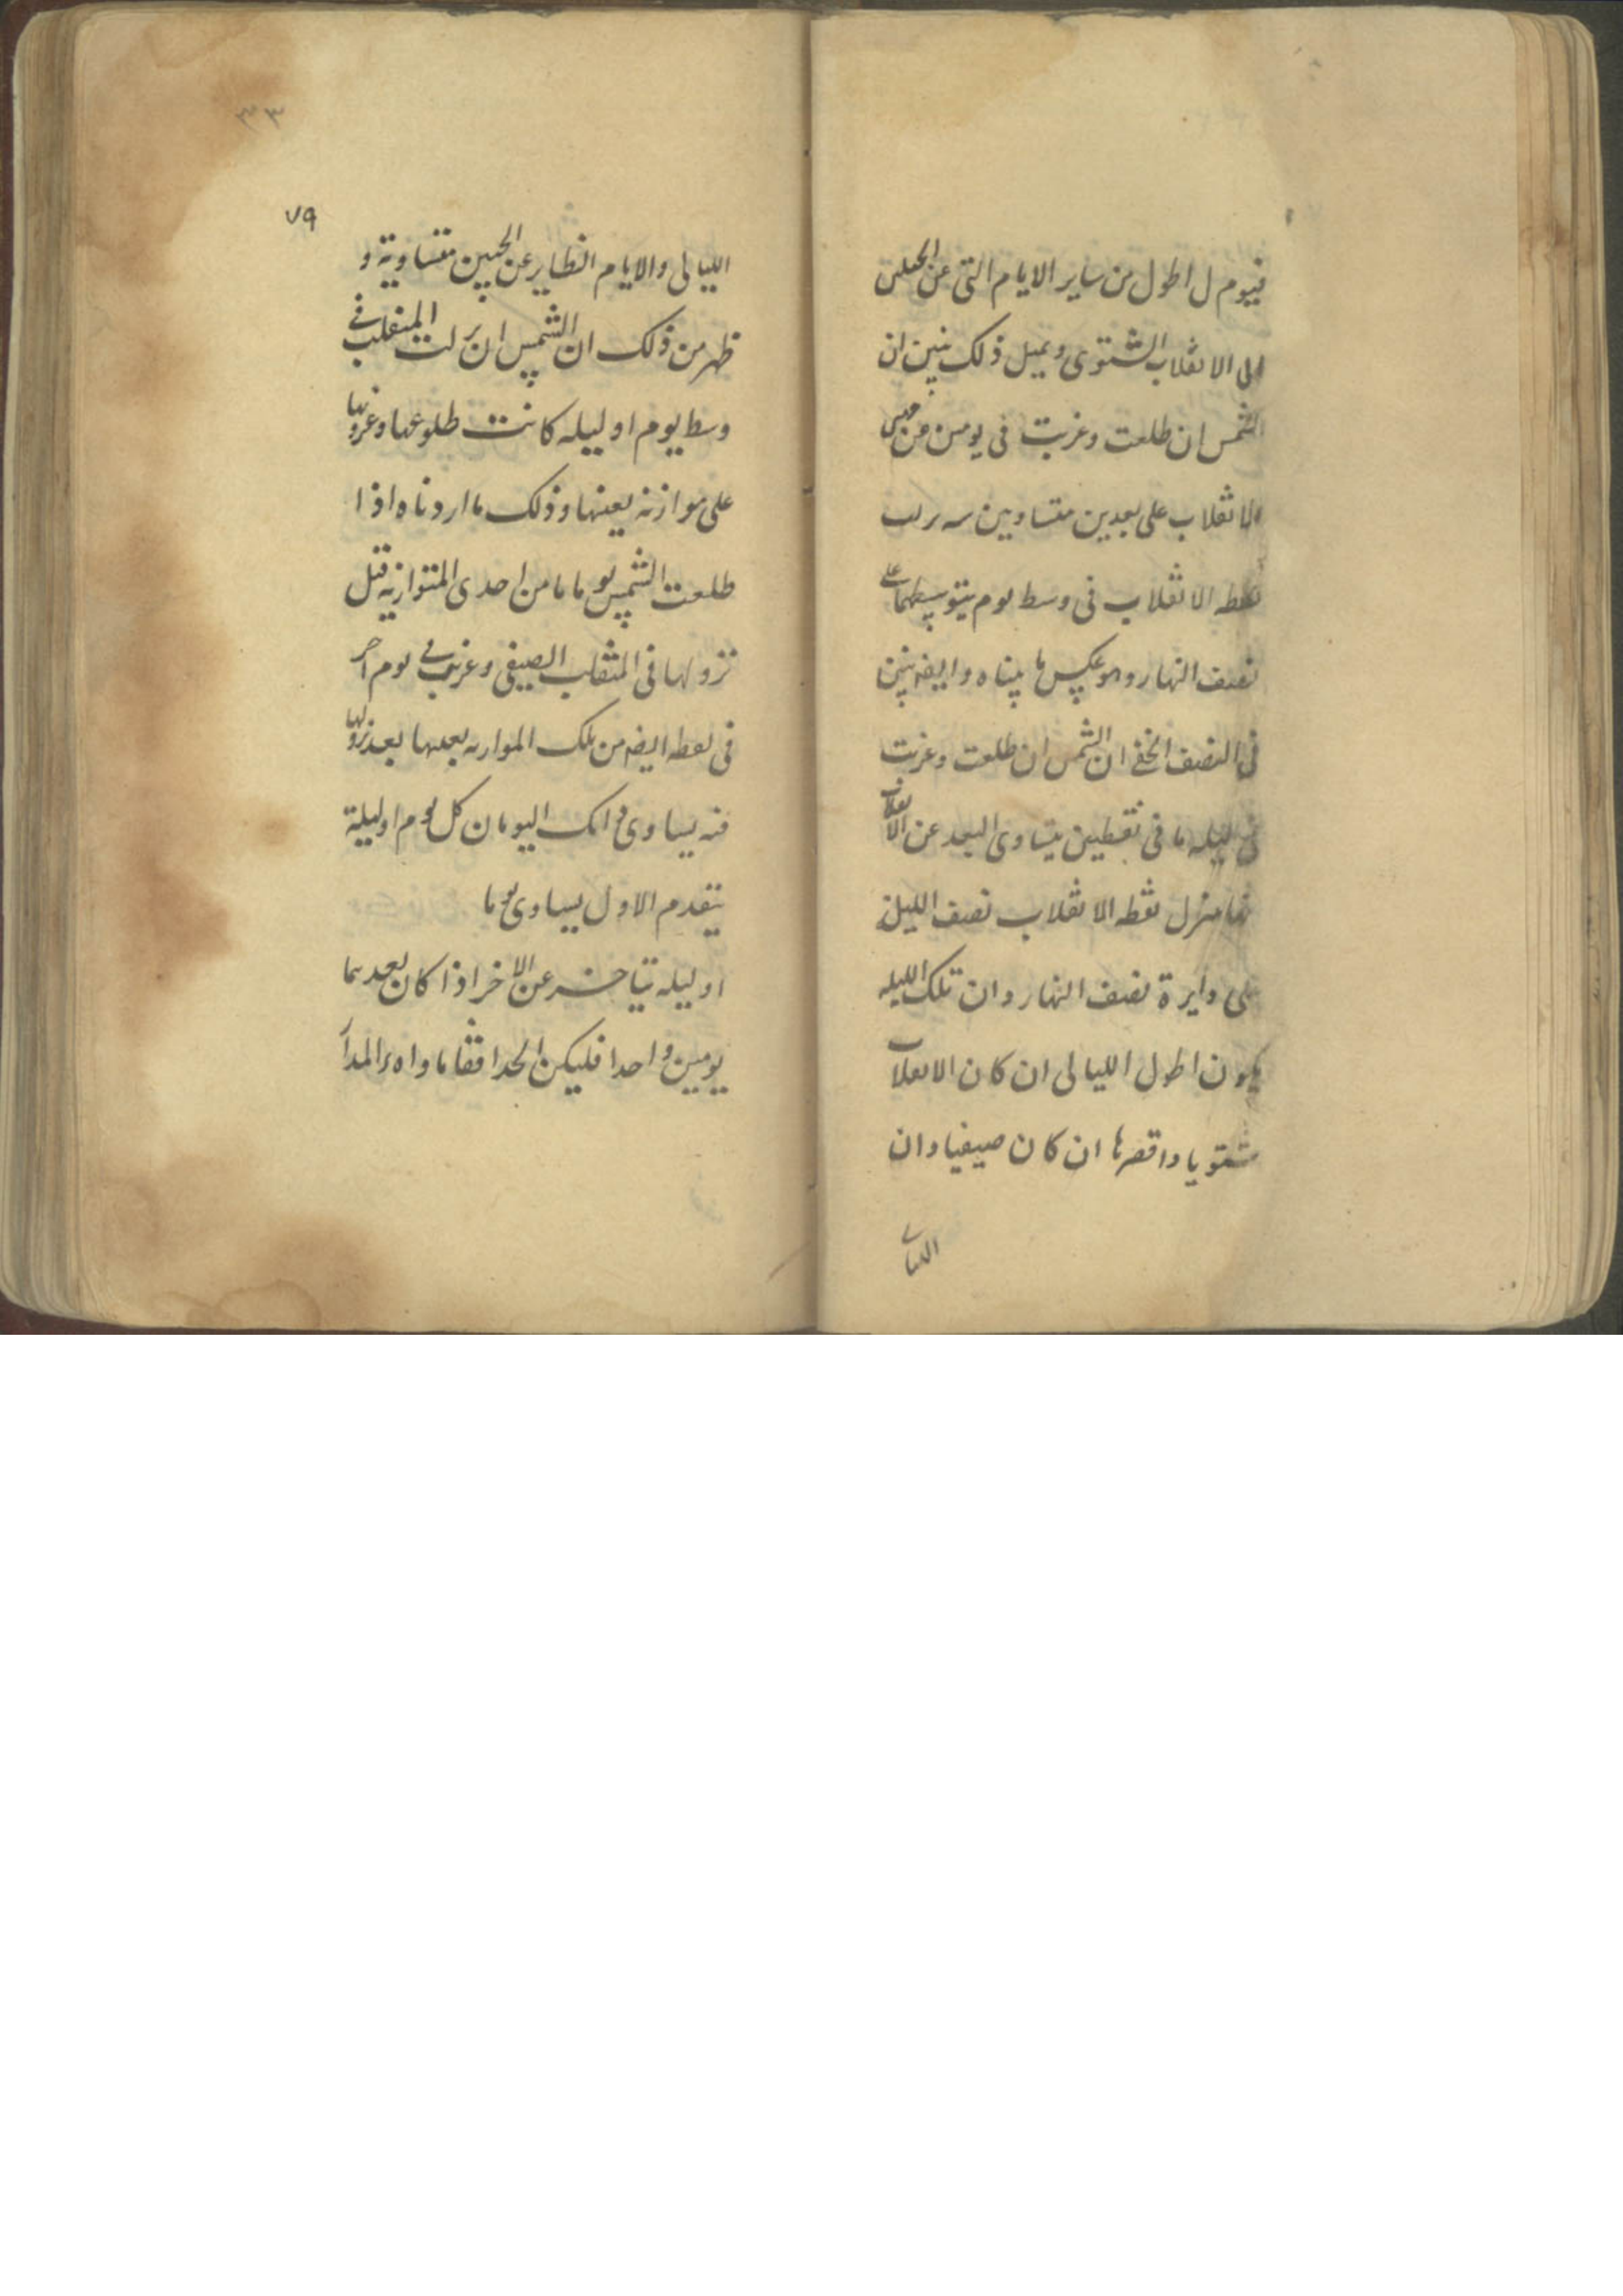 فيوم ل اطول من ساير الايام التى عن الجنبين
الى الانقلاب الشتوى وبمثل ذلك نبين ان
الشمس ان طلعت وغربت فى يومين عن جنبى
الانقلاب على بعدين متساويين
نقطه الانقلاب فى وسط يوم يتوسطهما على
نصف النهار وهو عكس ما بيناه وايضه نبين
فى النصف الخفى ان الشمس ان طلعت وغربت
فى ليله ما فى نقطتين يتساوى البعد عن الانقلاب
نقطه الانقلاب نصف الليل
على دايرة نصف النهار وان تلك الليله
يكون اطول الليالى ان كان الانقلاب
شتويا واقصرها ان كان صيفيا وان
الليالى
٧٩
٣٣
الليالى والايام النظاير عن الجنبين متساوية و
ظهر من ذلك ان الشمس ان نزلت المنقلب فى
وسط يوم او ليله كانت طلوعها وغروبها
على موازنه بعينها وذلك ما اردناه اذا
طلعت الشمس يوما ما من احدى المتوازيه قبل
نزولها فى المنقلب الصيفى وغربت فى يوم اخر
فى نقطه ايضه من تلك الموازيه بعينها بعد نزولها
فيه يساوى ذانك اليومان كل يوم او ليلة
يتقدم الاول يساوى يوما
او ليله يتاخر عن الاخر اذا كان بعدهما
يومين واحدا فليكن الحد افقا ما و اه ر المدار